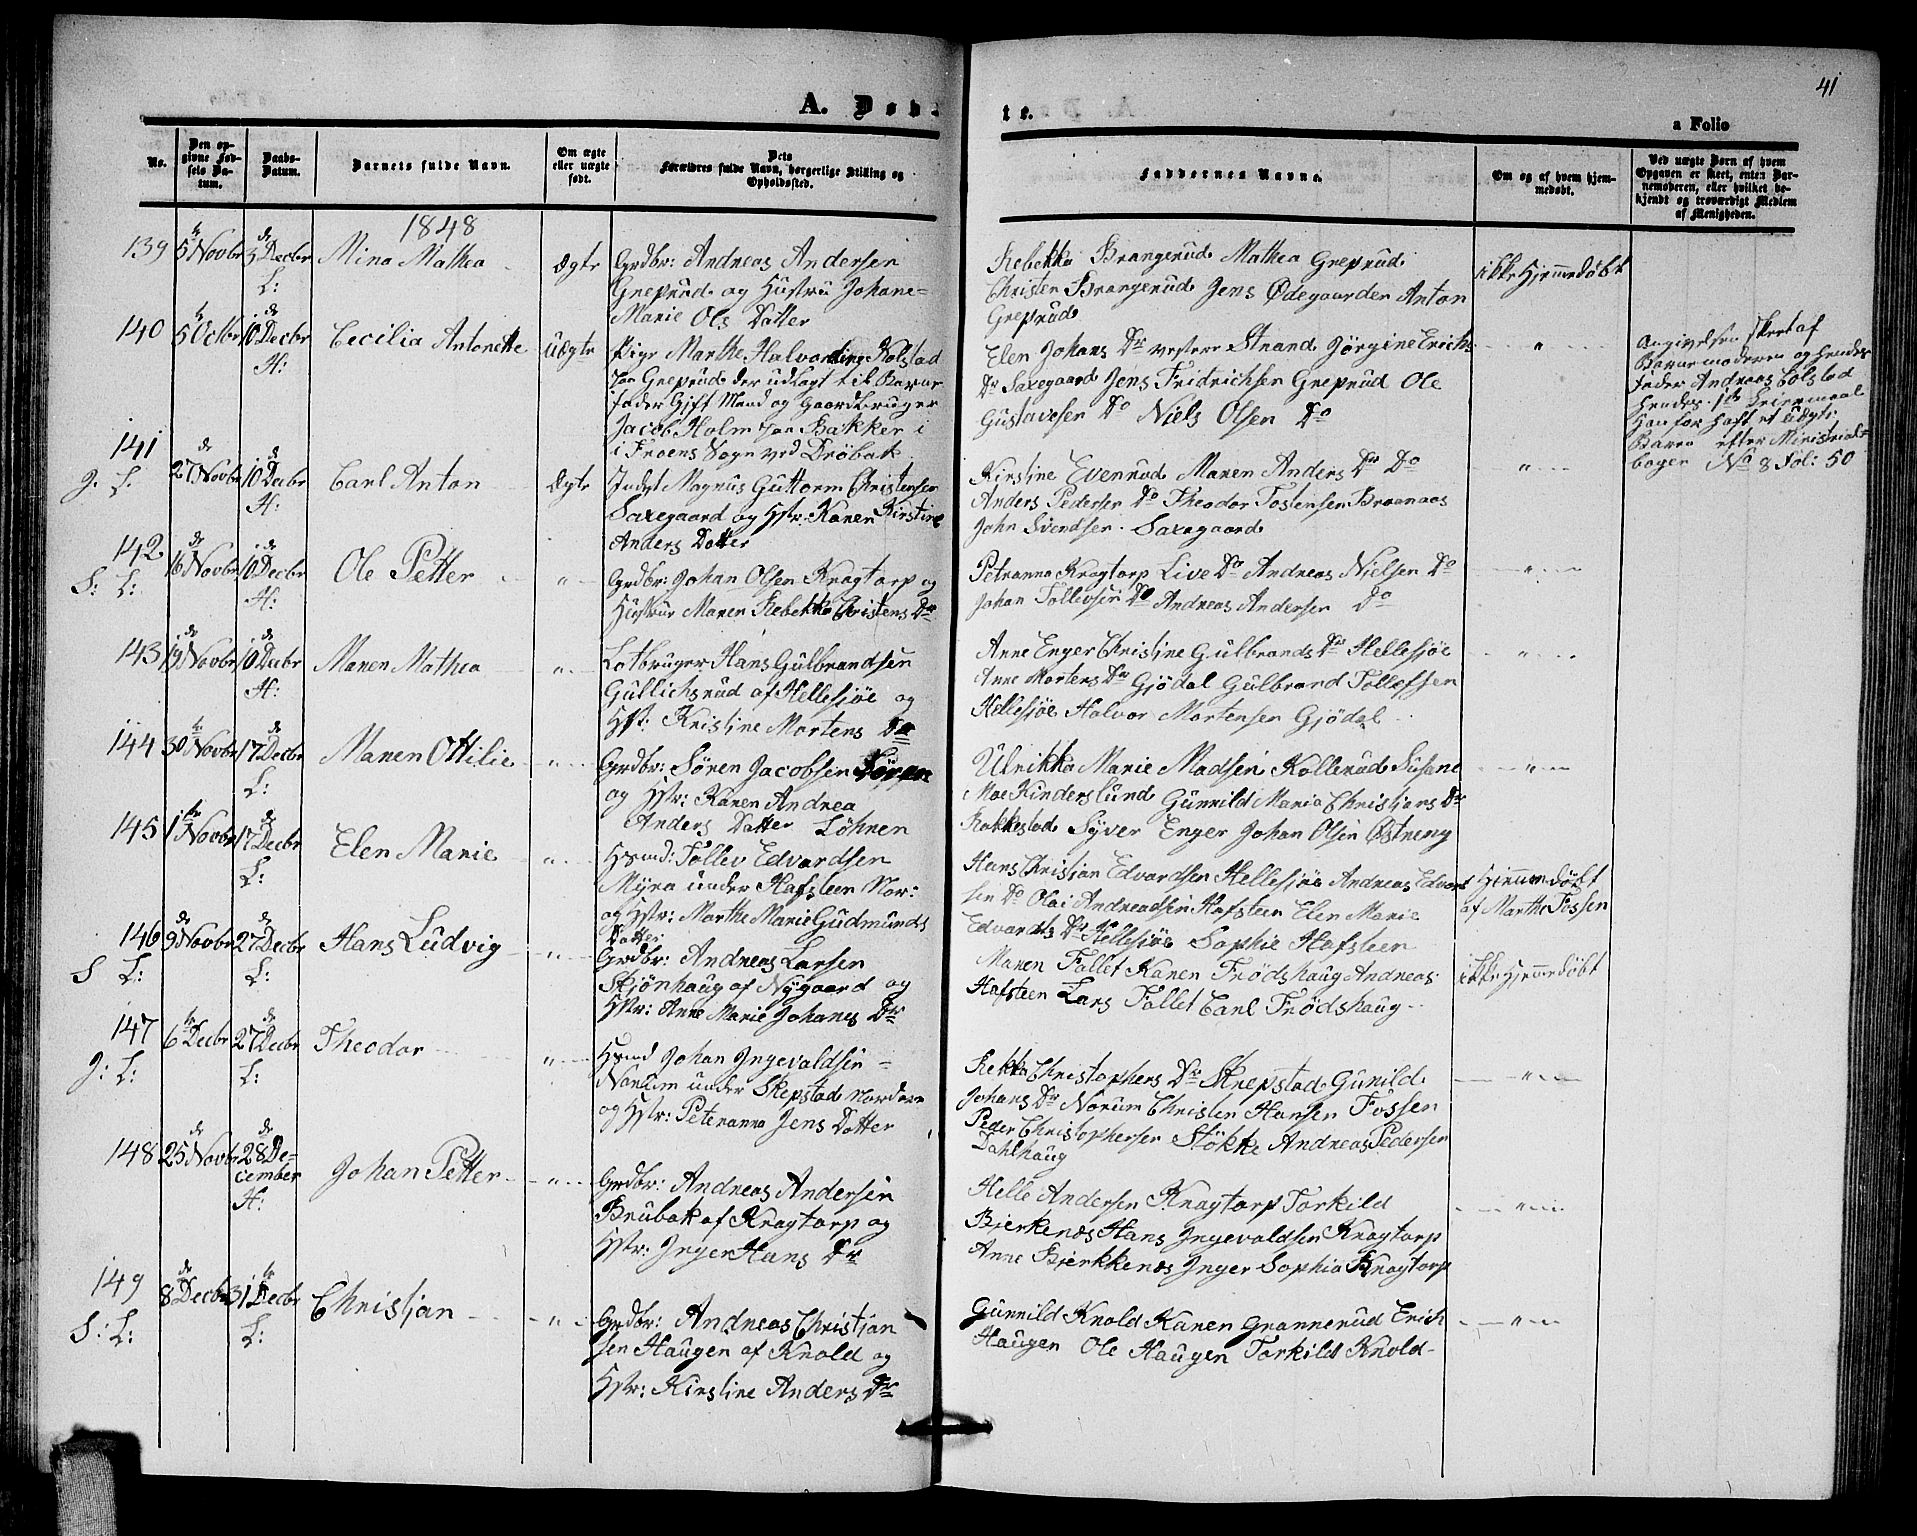 41
A. Døb-
te.
a Folio
No.
Den op-
givne Fød-
sels Da-
tum.
Daabs-
Datum.
Barnets fulde Navn.
Om ægte
eller uægte
født.
Dets
Forældres fulde Navn, borgerlige Stilling og
Opholdssted.
Faddernes Navne.
Om og af hvem hjem-
medøbt.
Ved uægte Børn af hvem
Opgaven er skeet, enten Bar-
nemoderen, eller hvilket be-
kjendt og troværdigt Medlem
af Menigheden.
1848
139 5te Novbr 3de Decbr Mina Mathea Ægte Grdbr: Andreas Andersen
L: Greprud og Hustru Johane-
Marie Ols Datter
Rebekka Brangerud Mathea Greprud
Christen Brangerud Jens Ødegaarden Anton
Greprud
ikke Hjemmedøbt
140 5te Octbr 10de Decbr Cecilia Antonette Uægte Pige Marthe Halvorsdtr Kolstad
H: paa Greprud der udlagt til Barne
fader Gift Mand og Gaardbruger
Jacob Holm paa Bakker i
i Froens Sogn ved Drøbak
Elen Johans Dr vestere Strand Jörgine Erichs
Dr Saxegaard Jens Fridrichsen Greprud Ole
Gustavesen Do Niels Olsen Do
"
Angivelsen skeet af
Barnemoderen og hendes
Fader Andreas Colstad
hendes 1te Leiermaal
Han før haft et Uægte
Barn efter Ministrial-
bogen No 8 Fol: 50
141 27de Novbr 10de Decbr Carl Anton Ægte Inds: Magnus Guttorm Christensen
J. L. H: Saxegaard og Hstr: Karen Kirstine
Anders Datter
Kirstine Evenrud Maren Anders Dr Do
Anders Pedersen Do Theodor Tostensen Braanaas
John Svendsen Saxegaard
"
142 16de Novbr 10de Decbr Ole Petter " Grdbr: Johan Olsen Kragtorp og
S: L: H: Hustrue Maren Rebekka Cristens Dr
Petranna Kragtorp Live Do Andreas Nielsen Do
Johan Tollevsen Do Andreas Andersen Do
"
143 19de Novbr 10de Decbr Maren Mathea " Lotbruger Hans Gulbrandsen
H: Gullichsrud af Hellesjøe og
Hst: Kristine Mortens Dr
Anne Enger Christine Gulbrands Dr Hellesjøe
Anne Mortens Dr Gjödal Gulbrand Tollefsen
Hellesjøe Halvor Mortensen Gjödal
"
144 30te Novbr 17de Decbr Maren Ottilie " Grdbr: Søren Jacobsen
L: og Hstr: Karen Andrea
Anders Datter Löhren
Ulrikka Marie Madsen Kollerud Susane
Moe Kinderslund Gunnild Maria Christians Dr
Rakkestad Syver Enger Johan Olsen Østreng
"
145 1te Novbr 17de Decbr Elen Marie " Hsmd: Tollev Edvardsen
L: Myra under Hafsteen Nor:
og Hstr: Marthe Marie Gudmunds
Datter
Hans Christian Edvardsen Hellesjøe Andreas Edvard
sen Do Olai Andreadsen Hafsteen Elen Marie
Edvards Dr Hellesjøe Sophie Hafsteen
Hjemmedøbt
af Marthe Fossen
146 9de Novbr 27de Decbr Hans Ludvig " Grdbr: Andreas Larsen
S L: L: Skjönhaug af Nygaard og
Hstr: Anne Marie Johanes Dr
Maren Follet Karen Frödshaug Andreas
Hafsteen Lars Follet Carl Frödshaug
ikke Hjemmedøbt
147 6te Decbr 27de Decbr Theodor " Hsmd Johan Ingevaldsen
J: L: L: Norum under Skepstad Nordere
og Hstr: Peteranna Jens Datter
Rekka Christophers Dr Skrepstad Gunild
Johans Dr Norum Christen Hansen Fossen
Peder Christophersen Støkke Andreas Pedersen
Dahlhaug
"
148 25de Novbr 28de De-
cember Johan Petter " Grdbr: Andreas Andersen
H: Brubak af Kragtorp og
Hstr: Inger Hans Dr
Helle Andersen Kragtorp Torkild
Bjerkenæs Hans Ingevaldsen Kragtorp
Anne Bjerkkenæs Inger Sophia Kragtorp
"
149 8de Decbr 31te Decbr Christjan " Grdbr: Andreas Christjan
S: L: L: sen Haugen af Knold og
Hstr: Kirstine Anders Dr
Gunnild Knold Karen Grannerud Erich
Haugen Ole Haugen Torkild Knold
"